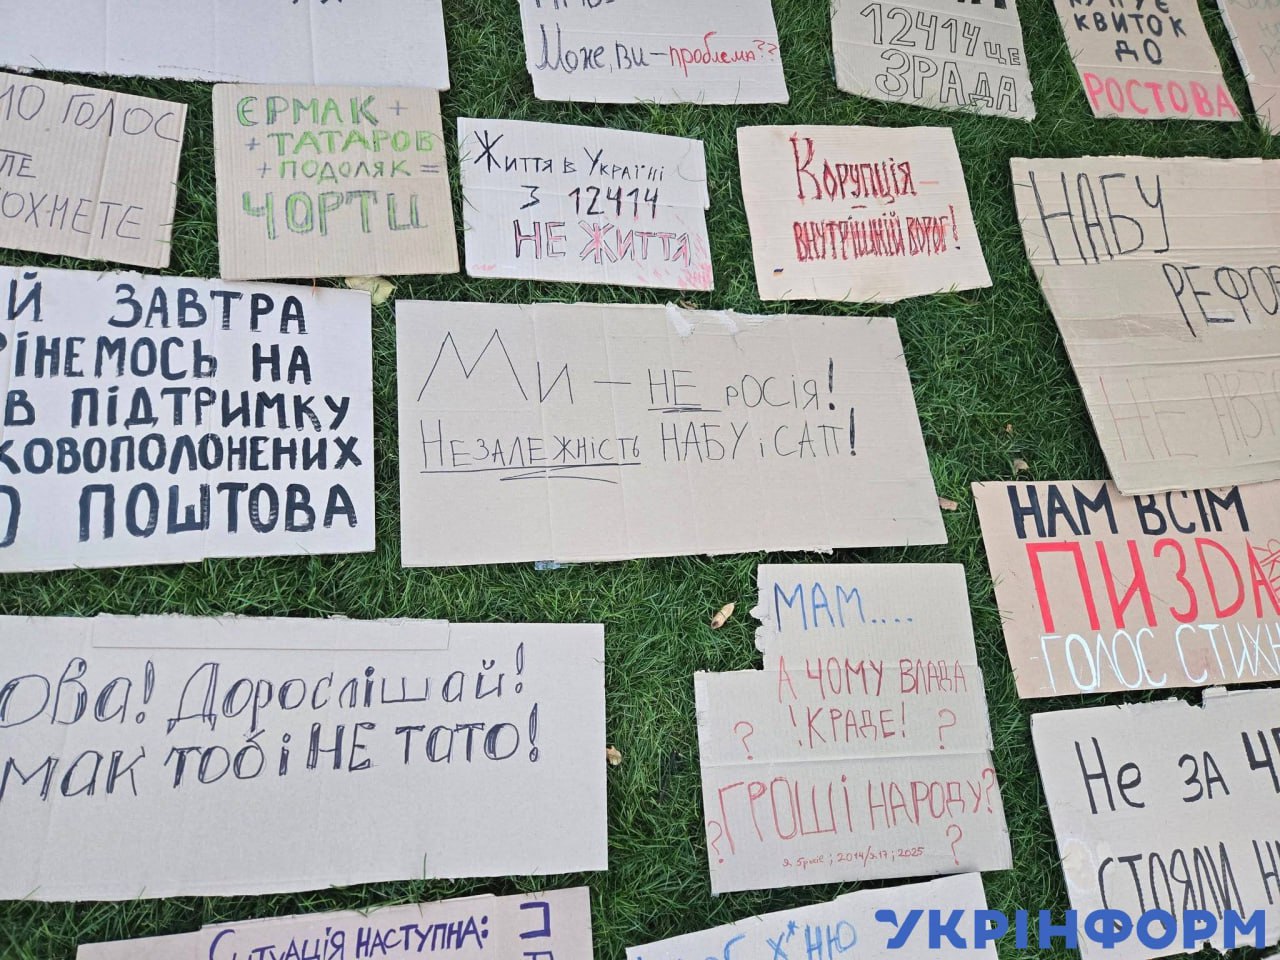 Може, ви - проблема??
12414 це
ЗРАДА
КВИТОК
ДО
РОСТОВА
ГОЛОС
ЄРМАК +
+ ТАТАРОВ
+ ПОДОЛЯК =
ЧОРТИ
Життя в Україні
З 12414
НЕ ЖИТТЯ
Корупція –
внутрішній ворог!
НАБУ
Й ЗАВТРА
НА
В ПІДТРИМКУ
ПОШТОВА
Ми – НЕ росія!
Незалежність НАБУ і САП!
НАМ ВСІМ
ПИЗДА
ГОЛОС
Дорослішай!
тобі НЕ тато!
МАМ....
А ЧОМУ ВЛАДА
? !КРАДЕ! ?
?ГРОШІ НАРОДУ?
?
Не за
СТОЯЛИ
Ситуація наступна:
Х*НЮ
УКРІНФОРМ